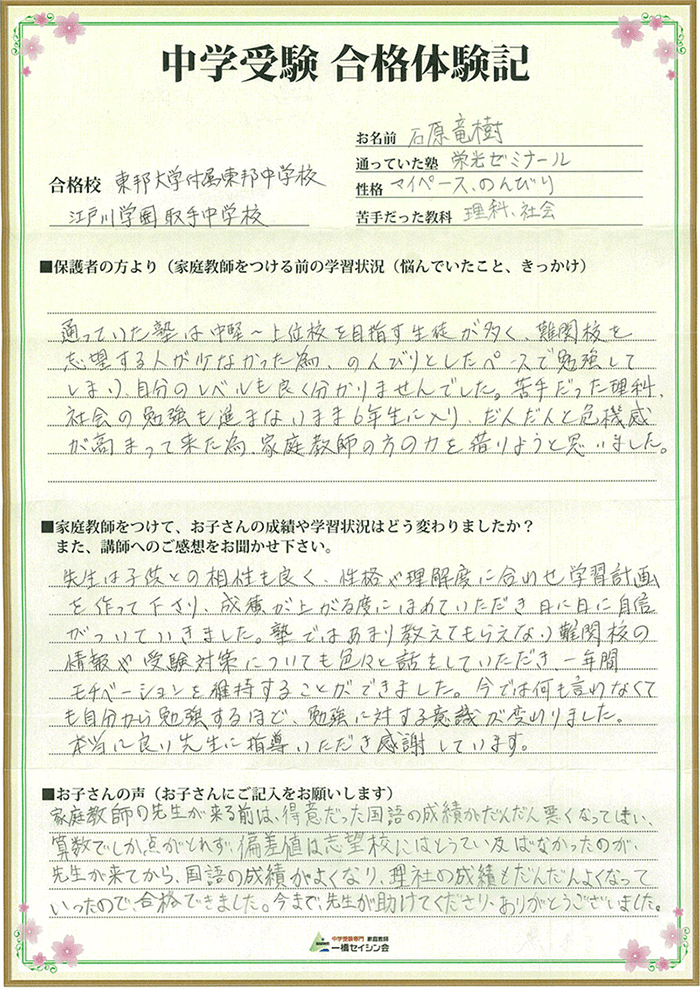 中学受験 合格体験記
お名前 石原竜樹
通っていた塾 栄光ゼミナール
合格校 東邦大学付属東邦中学校
性格 マイペース、のんびり
江戸川学園取手中学校
苦手だった教科 理科、社会
■保護者の方より（家庭教師をつける前の学習状況（悩んでいたこと、きっかけ）
通っていた塾は中堅〜上位校を目指す生徒が多く、難関校を
志望する人が少なかった為、のんびりとしたペースで勉強して
しまい、自分のレベルも良く分かりませんでした。苦手だった理科、
社会の勉強も進まないまま6年生に入り、だんだんと危機感
が高まって来た為、家庭教師の方の力を借りようと思いました。
■家庭教師をつけて、お子さんの成績や学習状況はどう変わりましたか？
また、講師へのご感想をお聞かせ下さい。
先生は子供との相性も良く、性格や理解度に合わせ学習計画
を作って下さり、成績が上がる度にほめていただき日に日に自信
がついていきました。塾ではあまり教えてもらえない難関校の
情報や受験対策についても色々と話をしていただき、一年間
モチベーションを維持することができました。今では何も言わなくて
も自分から勉強するほど、勉強に対する意識が変わりました。
本当に良い先生に指導いただき感謝しています。
■お子さんの声（お子さんにご記入をお願いします）
家庭教師の先生が来る前は、得意だった国語の成績がだんだん悪くなってしまい、
算数でしか点がとれず、偏差値は志望校にはとうてい及ばなかったのが、
先生が来てから、国語の成績がよくなり、理社の成績もだんだんよくなって
いったので、合格できました。今まで、先生が助けてくださり、ありがとうございました。
中学受験専門 家庭教師
一橋セイシン会